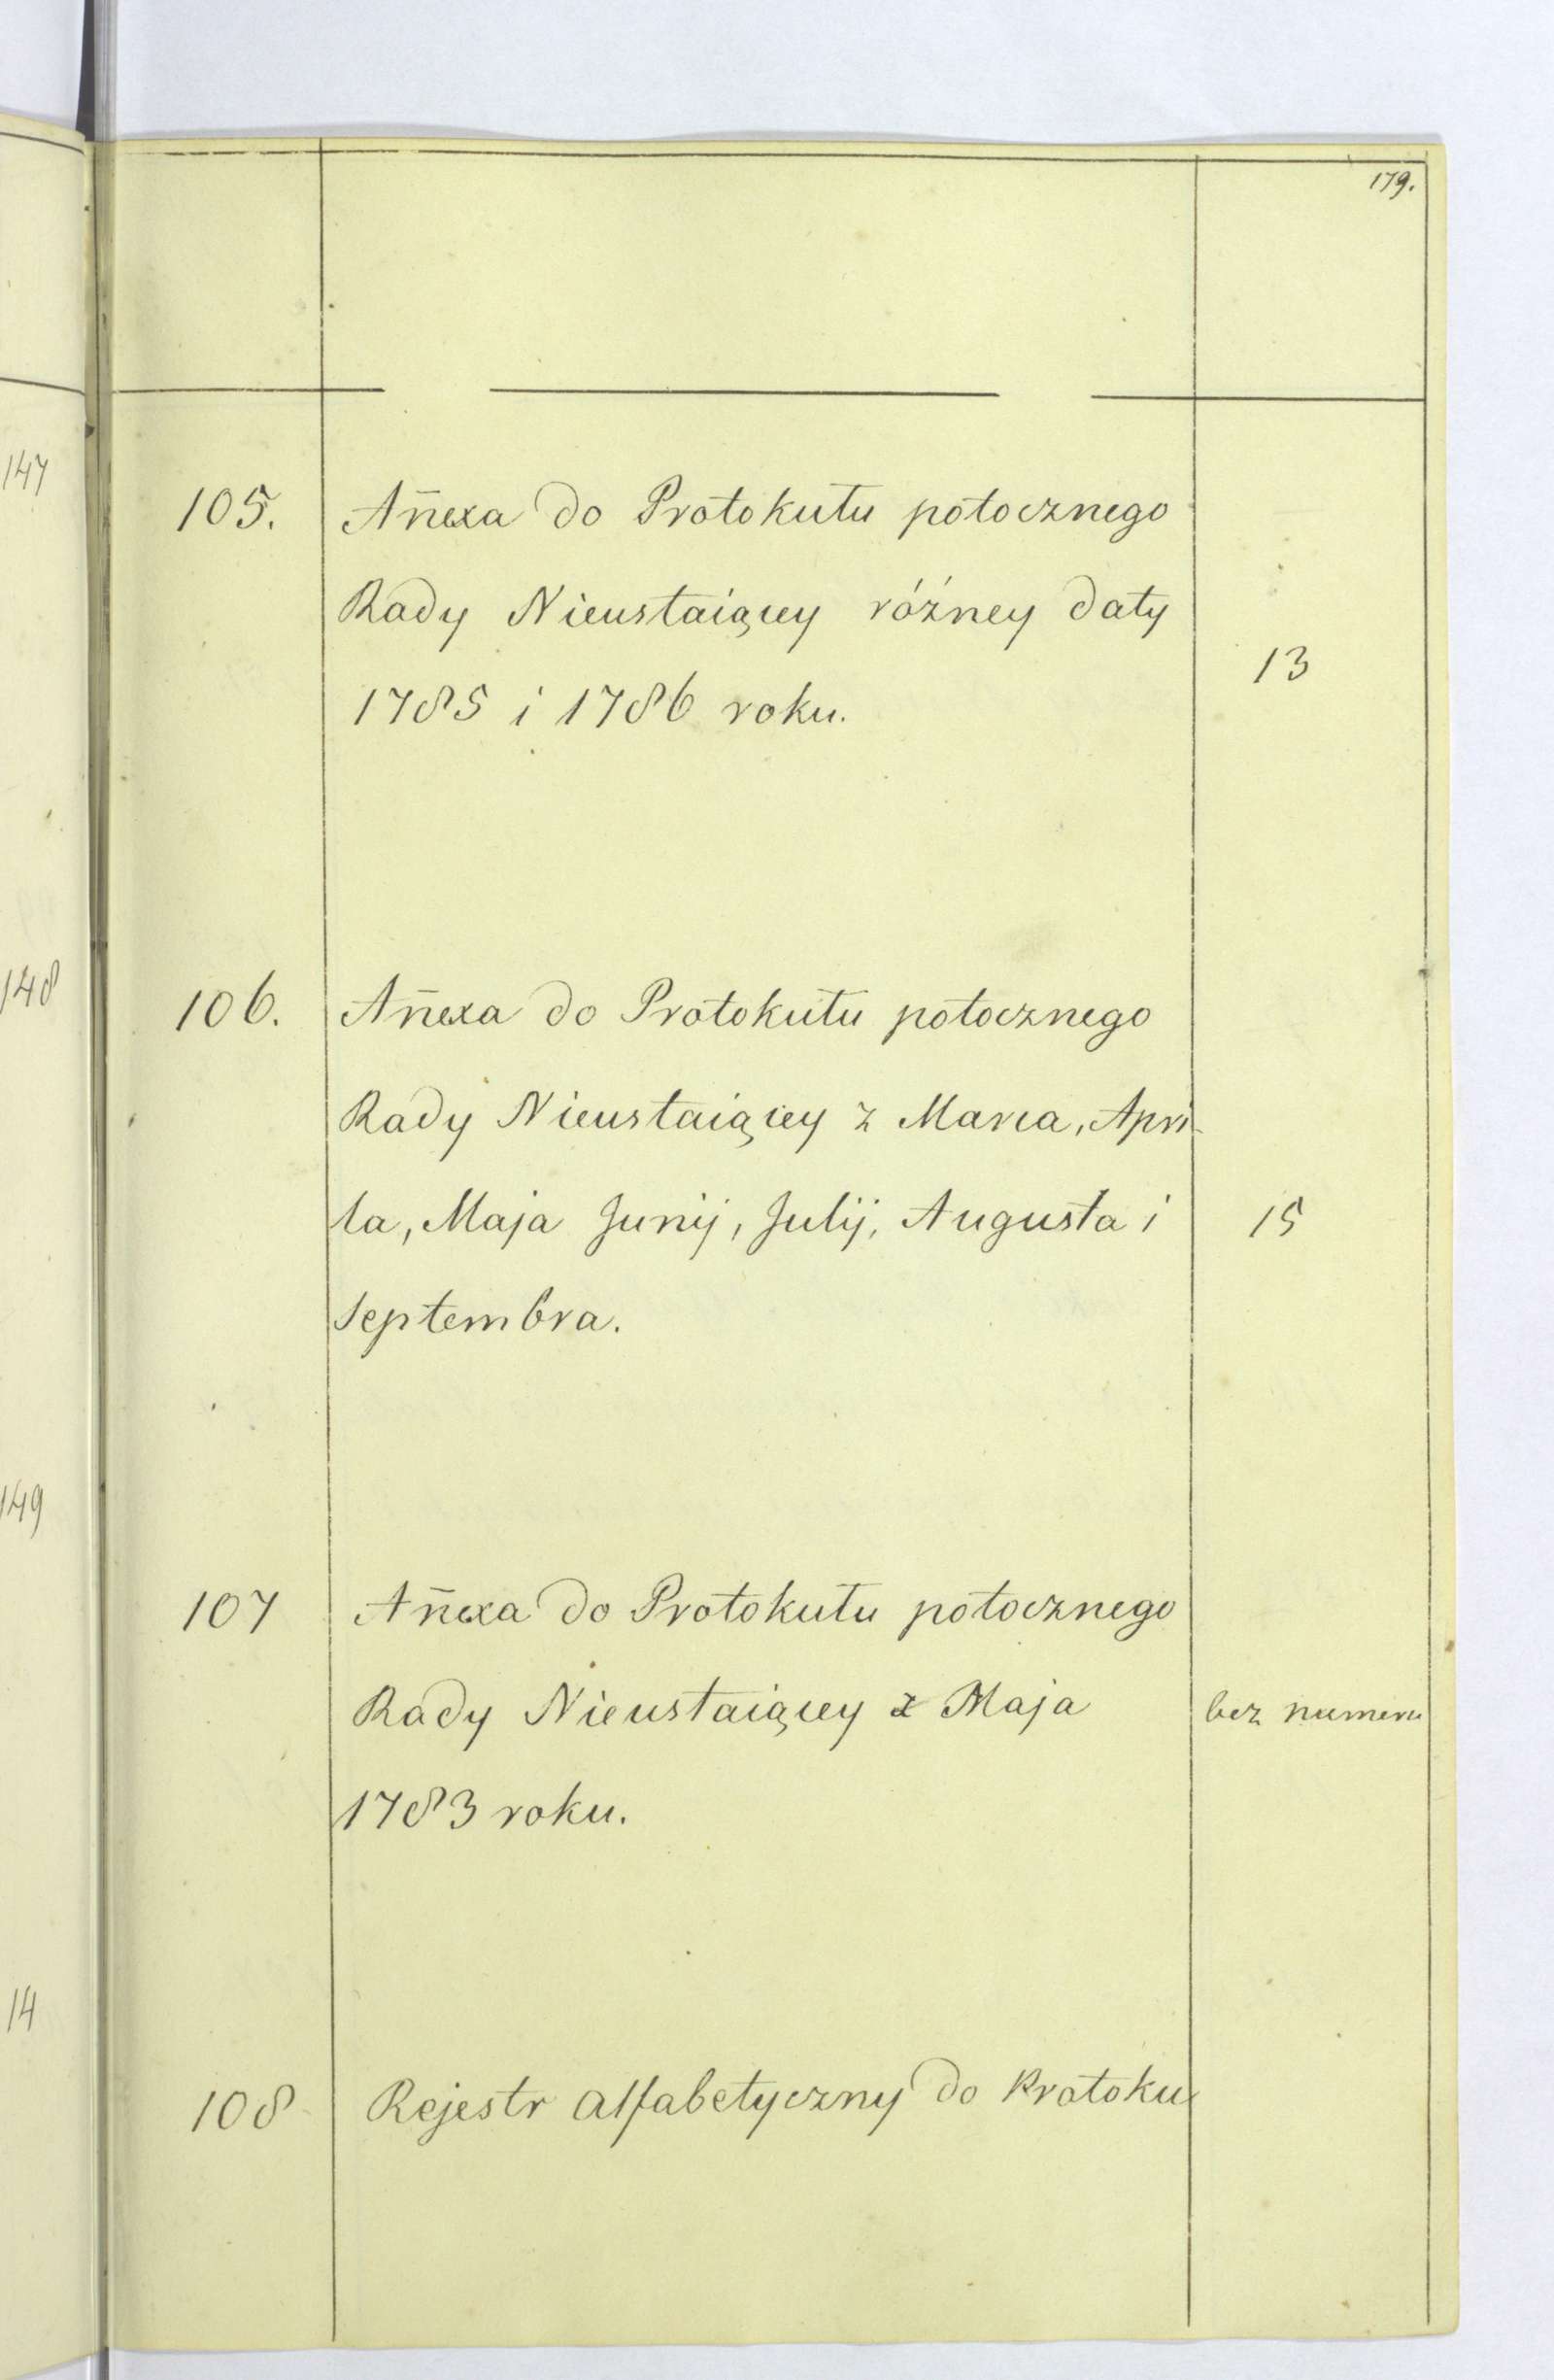 179.
147
105. Añexa do Protokułu potocznego
Rady Nieustaiącey różney daty
13
1785 i 1786 roku.
148
106. Añexa do Protokułu potocznego
Rady Nieustaiącey z Marca, Apri-
la, Maja Junij, Julij, Augusta i 15
Septembra.
149
107 Añexa do Protokułu potocznego
Rady Nieustaiącey z Maja bez numeru
1783 roku.
14
108 Rejestr alfabetyczny do Protoku